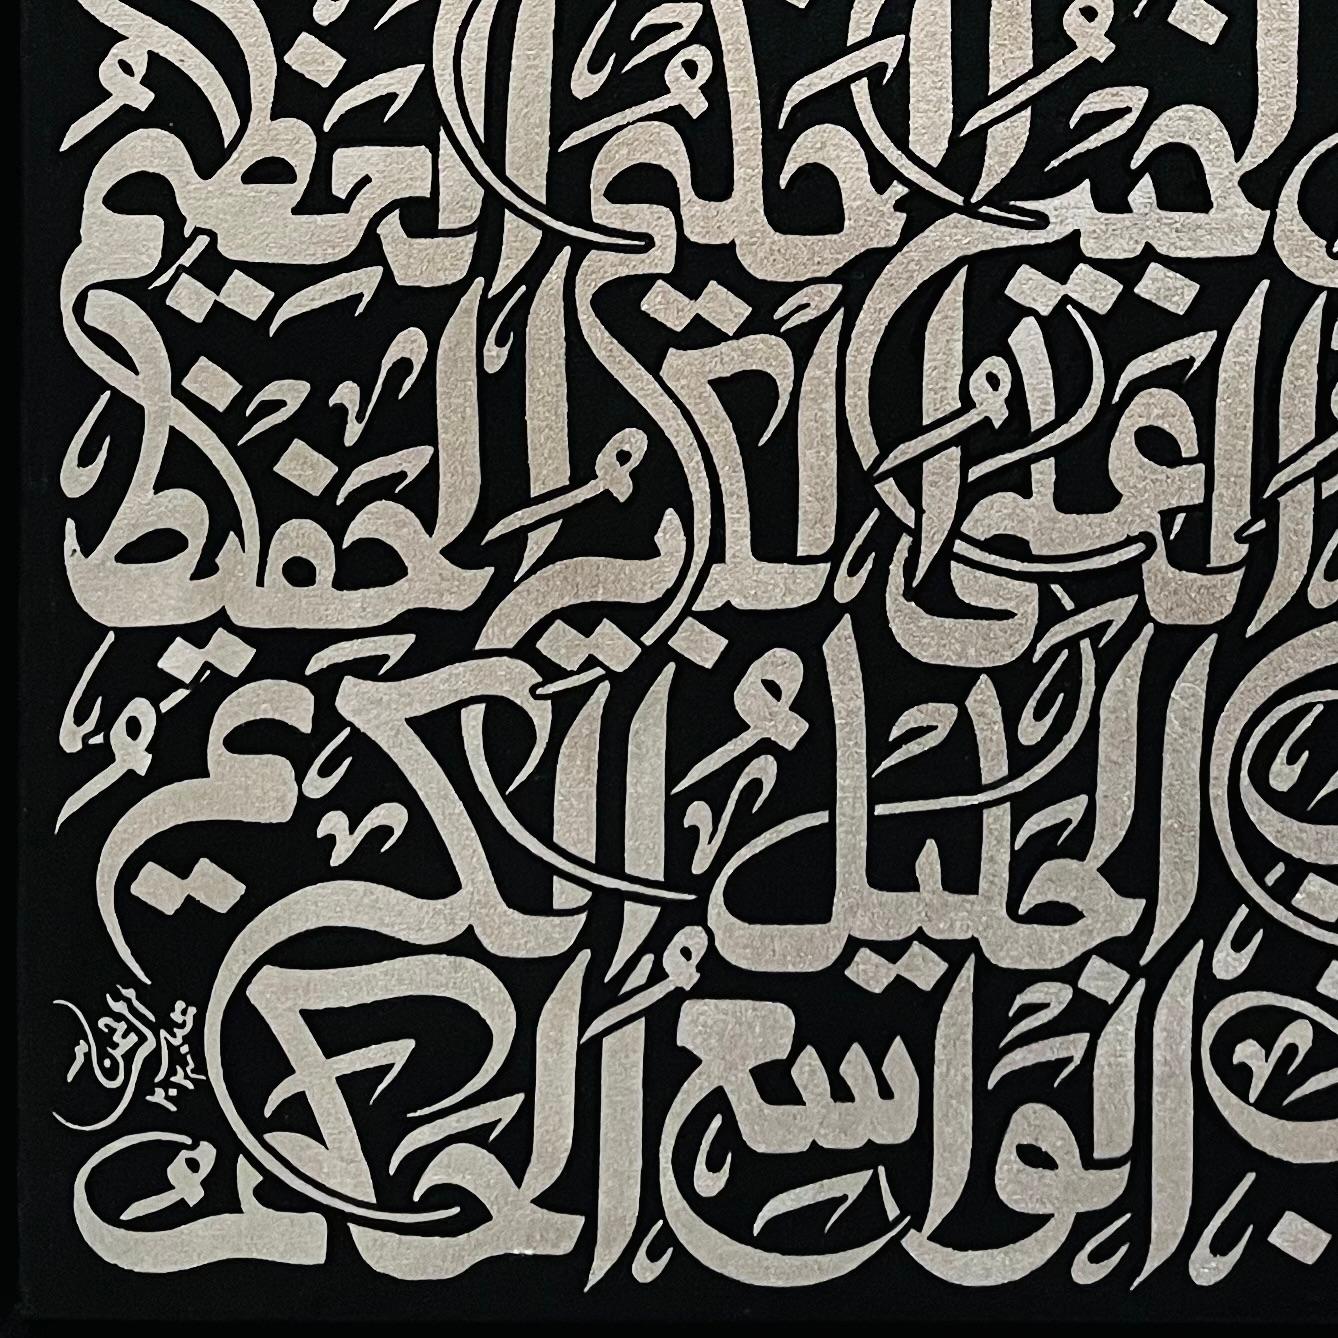 الخبير الحليم العظيم
العلي الكبير الحفيظ
الجليل الكريم
الواسع الحكيم